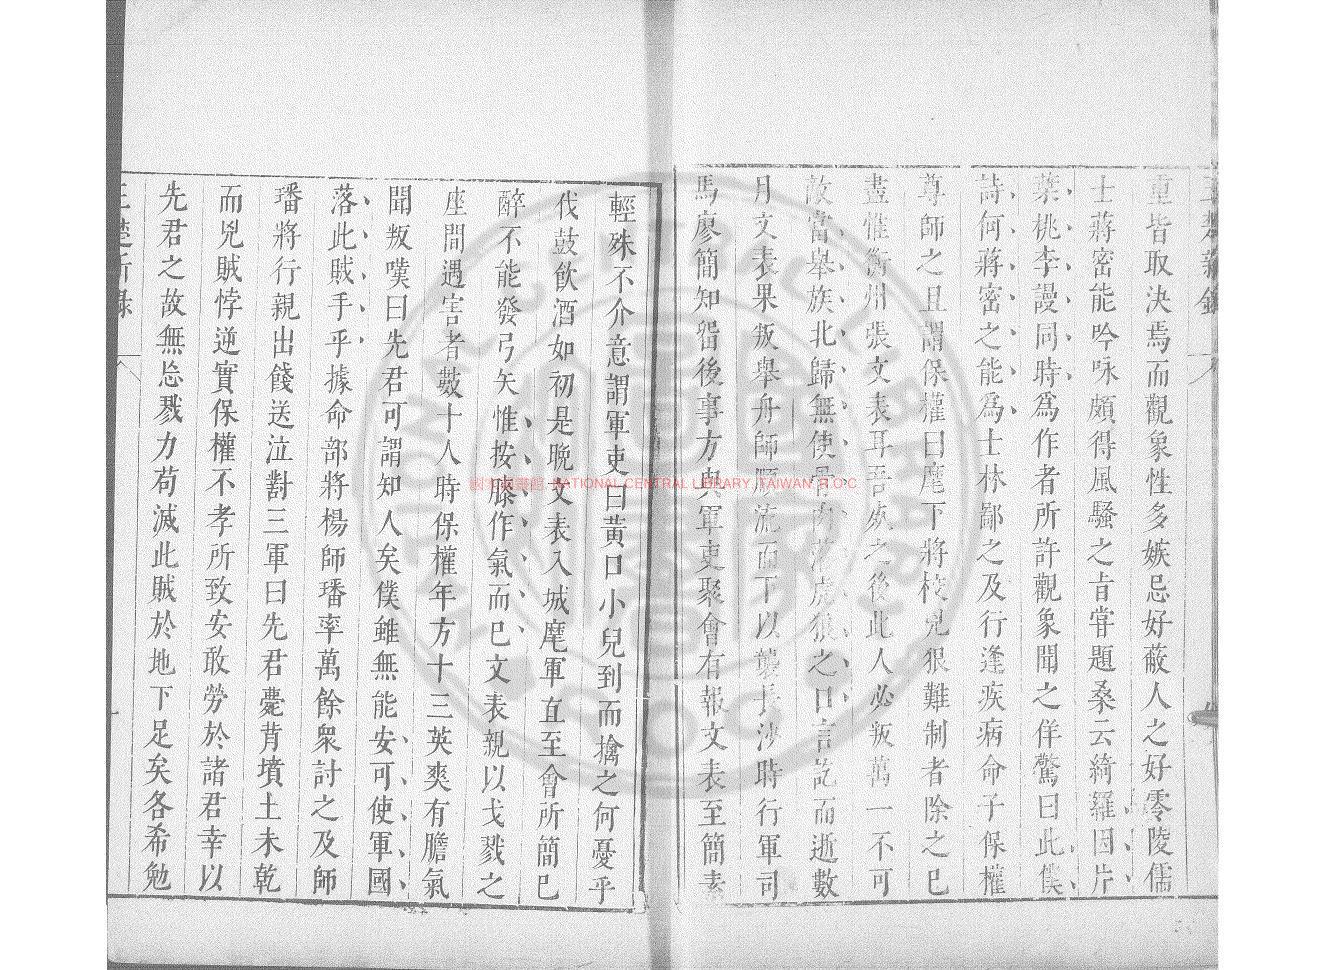 三楚新錄
重皆取決焉而觀象性多嫉忌好蔽人之好零陵儒
士蔣密能吟咏頗得風騷之旨甞題桑云綺羅因片
葉桃李謾同時爲作者所許觀象聞之佯驚曰此僕
詩何蔣密之能爲士林鄙之及行逢疾病命子保權
尊師之且謂保權曰麾下將校兇狠難制者除之已
盡惟衡州張文表耳吾歿之後此人必叛萬一不可
敵當舉族北歸無使骨肉落虎狼之口言訖而逝數
月文表果叛舉舟師順流而下以襲長沙時行軍司
馬廖簡知留後事方與軍吏聚會有報文表至簡素
輕殊不介意謂軍吏曰黃口小兒到而擒之何憂乎
伐鼓飲酒如初是晚文表入城麾軍直至會所簡已
醉不能發弓矢惟按膝作氣而已文表親以戈戮之
座間遇害者數十人時保權年方十三英爽有膽氣
聞叛嘆曰先君可謂知人矣僕雖無能安可使軍國
落此賊手乎據命部將楊師璠率萬餘衆討之及師
璠將行親出餞送泣對三軍曰先君薨背墳土未乾
而兇賊悖逆實保權不孝所致安敢勞於諸君幸以
先君之故無忘戮力苟滅此賊於地下足矣各希勉
三楚新錄
國家圖書館 NATIONAL CENTRAL LIBRARY, TAIWAN R.O.C